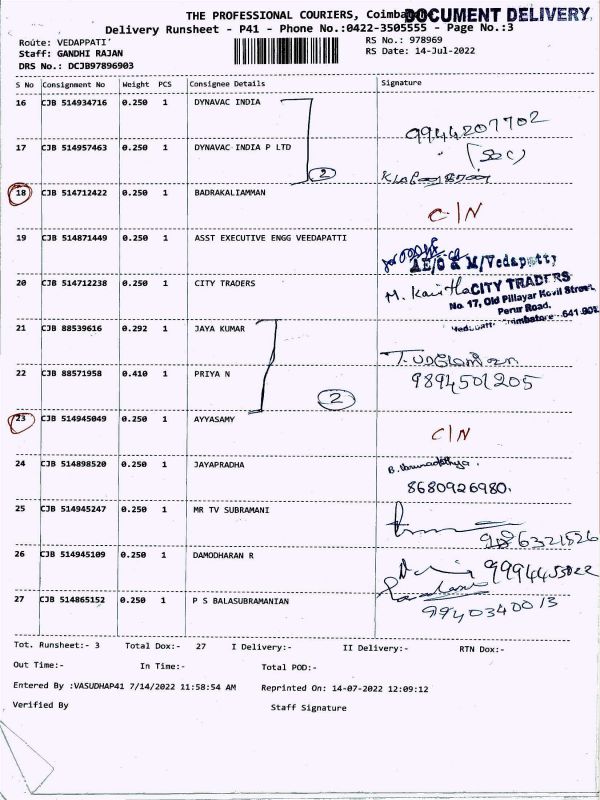 THE PROFESSIONAL COURIERS, Coimba DOCUMENT DELIVERY
Delivery Runsheet - P41 - Phone No.:0422-3505555 - Page No.:3
Route: VEDAPPATI' RS No.: 978969
Staff: GANDHI RAJAN RS Date: 14-Jul-2022
DRS No.: DCJB97896903
S No Consignment No Weight PCS Consignee Details Signature
16 CJB 514934716 0.250 1 DYNAVAC INDIA
9944207702
17 CJB 514957463 0.250 1 DYNAVAC INDIA P LTD
2
18 CJB 514712422 0.250 1 BADRAKALIAMMAN C/N
19 CJB 514871449 0.250 1 ASST EXECUTIVE ENGG VEEDAPATTI
AE/O & M/Vedapatty
20 CJB 514712238 0.250 1 CITY TRADERS M. Kavitha CITY TRADERS
No. 17, Old Pillayar Kovil Street,
Perur Road,
21 CJB 88539616 0.292 1 JAYA KUMAR
22 CJB 88571958 0.410 1 PRIYA N 9894501205
2
23 CJB 514945049 0.250 1 AYYASAMY C/N
24 CJB 514898520 0.250 1 JAYAPRADHA
8680926980.
25 CJB 514945247 0.250 1 MR TV SUBRAMANI
9186321526
26 CJB 514945109 0.250 1 DAMODHARAN R
27 CJB 514865152 0.250 1 P S BALASUBRAMANIAN 9940340013
Tot. Runsheet:- 3 Total Dox:- 27 I Delivery:- II Delivery:- RTN Dox:-
Out Time:- In Time:- Total POD:-
Entered By :VASUDHAP41 7/14/2022 11:58:54 AM Reprinted On: 14-07-2022 12:09:12
Verified By Staff Signature